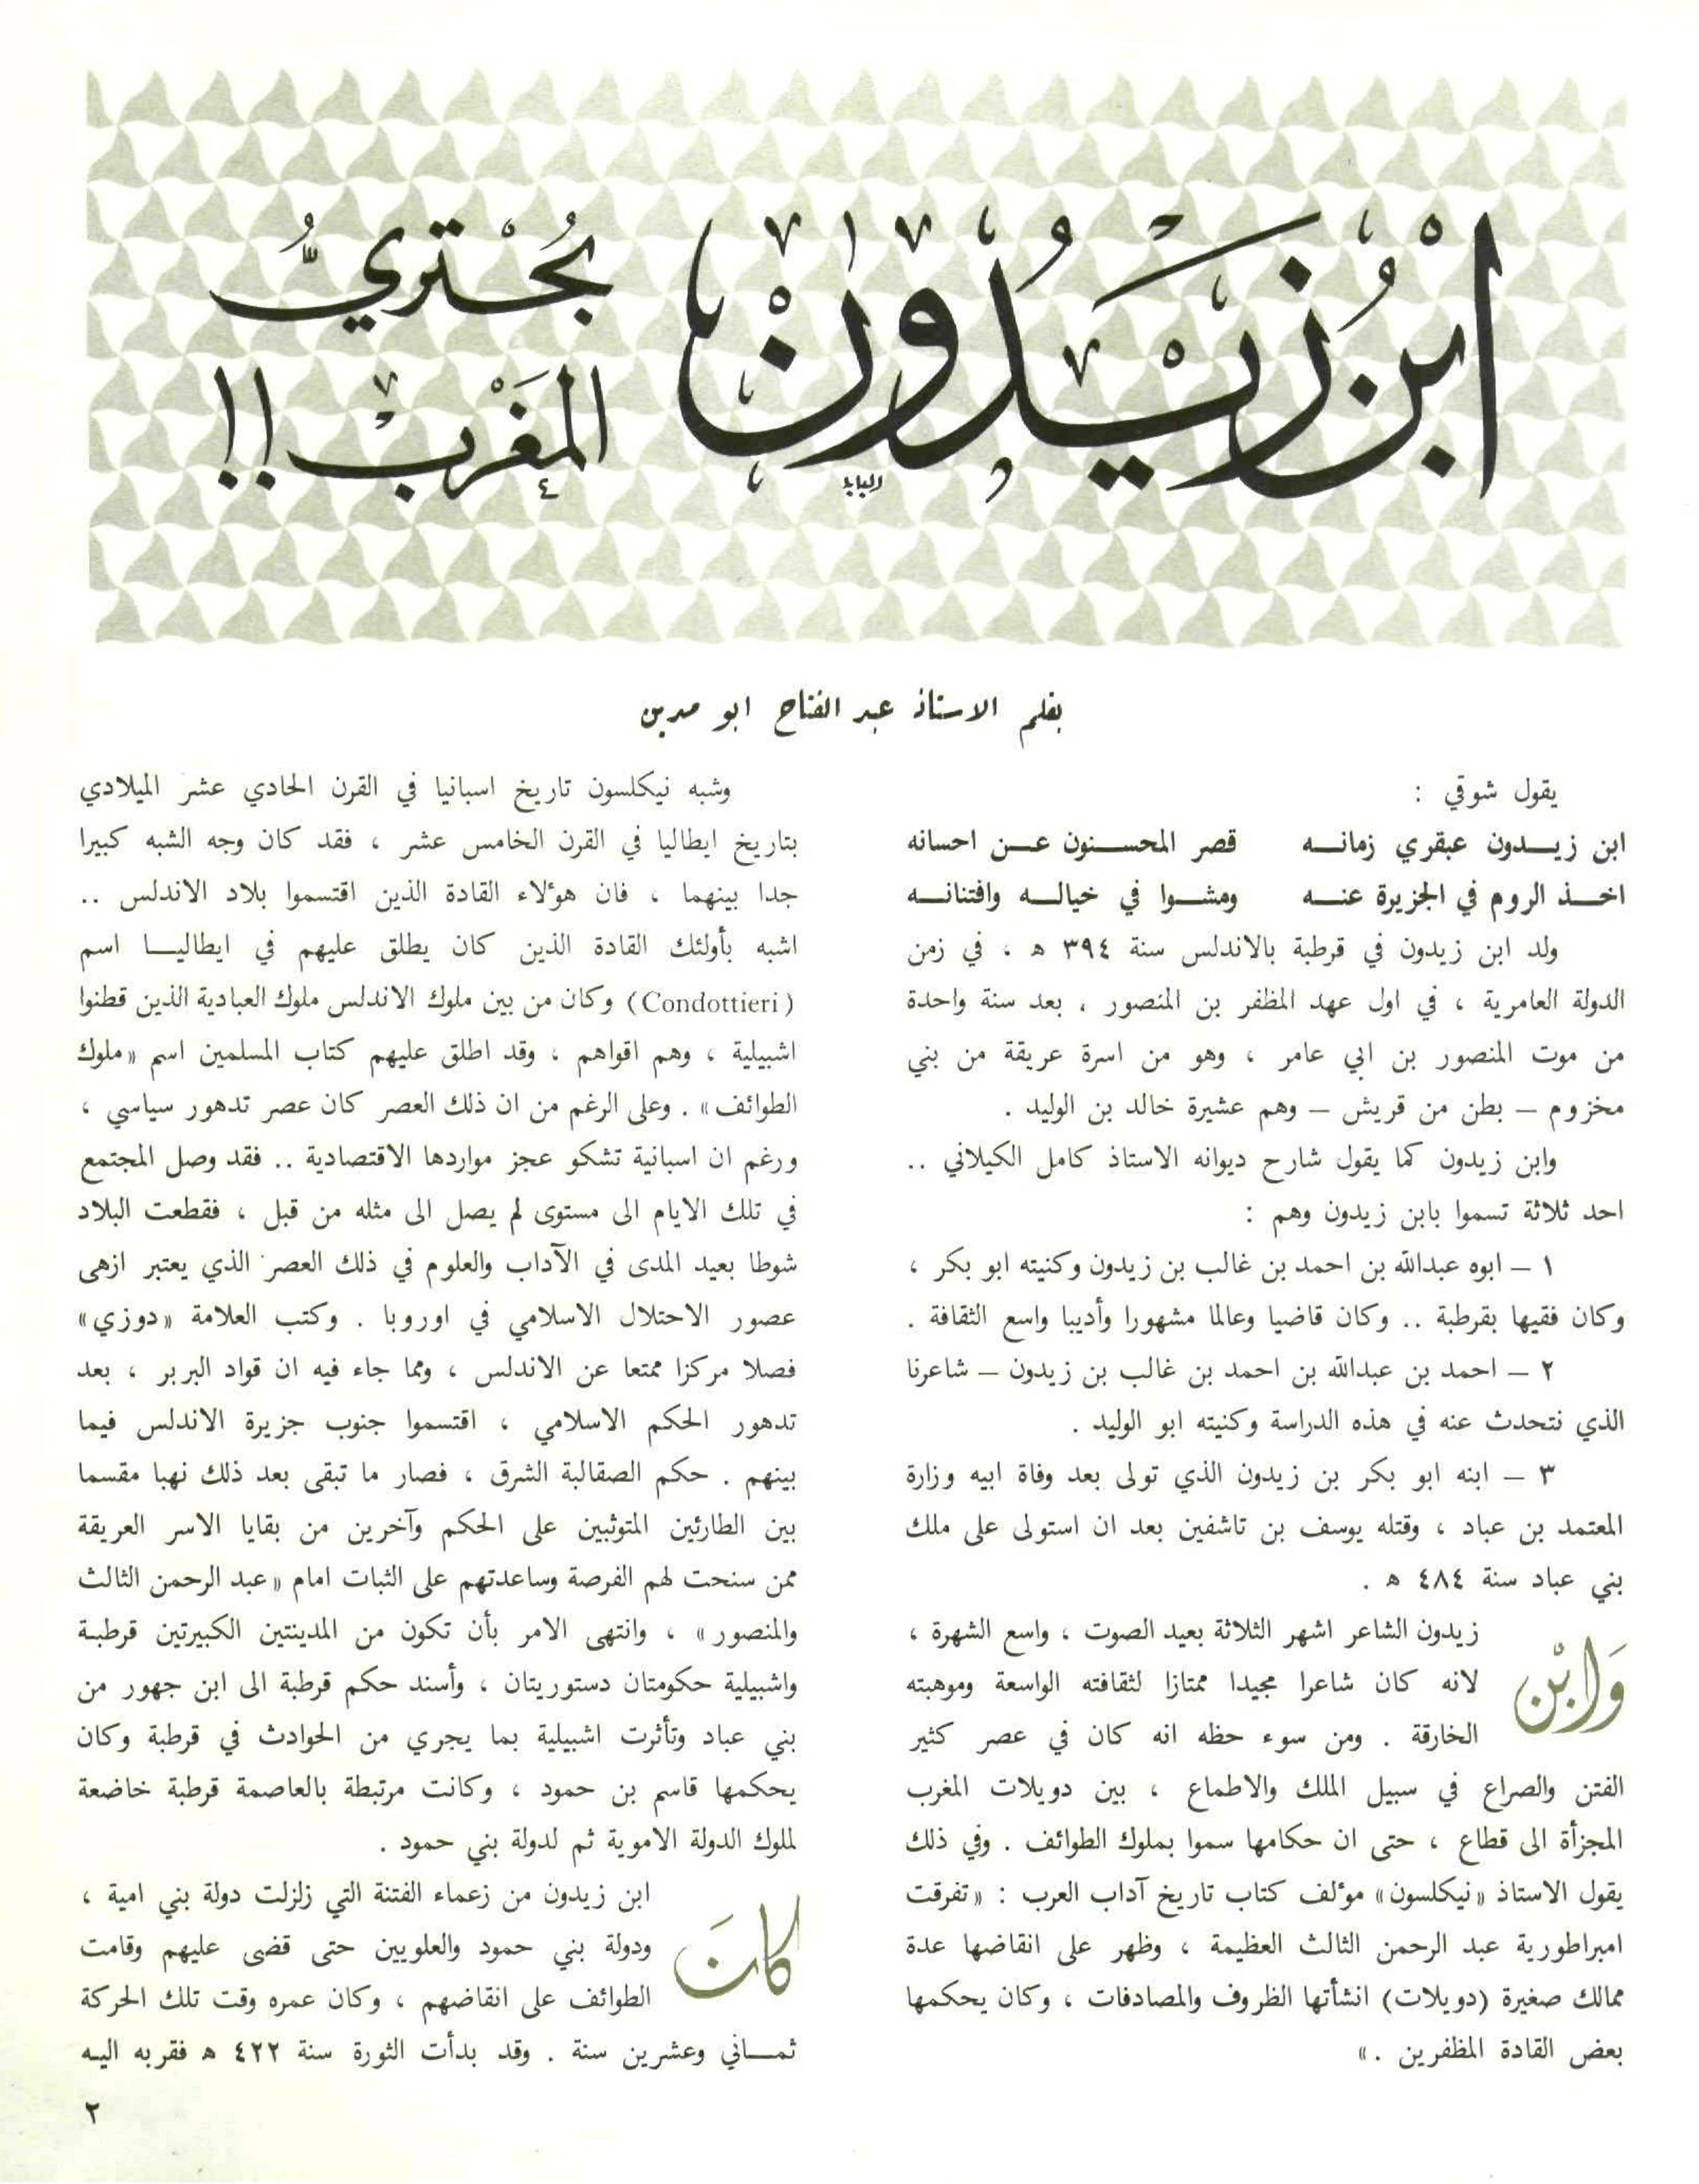 ابْنُ زَيْدُونْ
بُحْتُرِيُّ
المَغْرِبْ !!
بقلم الاستاذ عبد الفتاح ابو مدين
يقول شوقي :
ابن زيـدون عبقري زمانـه قصر المحسـنون عـن احسانه
اخـذ الروم في الجزيرة عنـه ومشـوا في خيالـه وافتنانـه
ولد ابن زيدون في قرطبة بالاندلس سنة ٣٩٤ ه ، في زمن
الدولة العامرية ، في اول عهد المظفر بن المنصور ، بعد سنة واحدة
من موت المنصور بن ابي عامر ، وهو من اسرة عريقة من بني
مخزوم – بطن من قريش – وهم عشيرة خالد بن الوليد .
وابن زيدون كما يقول شارح ديوانه الاستاذ كامل الكيلاني ..
احد ثلاثة تسموا بابن زيدون وهم :
١ – ابوه عبدالله بن احمد بن غالب بن زيدون وكنيته ابو بكر ،
وكان فقيها بقرطبة .. وكان قاضيا وعالما مشهورا وأديبا واسع الثقافة .
٢ – احمد بن عبدالله بن احمد بن غالب بن زيدون – شاعرنا
الذي نتحدث عنه في هذه الدراسة وكنيته ابو الوليد .
٣ – ابنه ابو بكر بن زيدون الذي تولى بعد وفاة ابيه وزارة
المعتمد بن عباد ، وقتله يوسف بن تاشفين بعد ان استولى على ملك
بني عباد سنة ٤٨٤ ه .
وَابْن زيدون الشاعر اشهر الثلاثة بعيد الصوت ، واسع الشهرة ،
لانه كان شاعرا مجيدا ممتازا لثقافته الواسعة وموهبته
الخارقة . ومن سوء حظه انه كان في عصر كثير
الفتن والصراع في سبيل الملك والاطماع ، بين دويلات المغرب
المجزأة الى قطاع ، حتى ان حكامها سموا بملوك الطوائف . وفي ذلك
يقول الاستاذ «نيكلسون» مؤلف كتاب تاريخ آداب العرب : «تفرقت
امبراطورية عبد الرحمن الثالث العظيمة ، وظهر على انقاضها عدة
ممالك صغيرة (دويلات) انشأتها الظروف والمصادفات ، وكان يحكمها
بعض القادة المظفرين .»
وشبه نيكلسون تاريخ اسبانيا في القرن الحادي عشر الميلادي
بتاريخ ايطاليا في القرن الخامس عشر ، فقد كان وجه الشبه كبيرا
جدا بينهما ، فان هؤلاء القادة الذين اقتسموا بلاد الاندلس ..
اشبه بأولئك القادة الذين كان يطلق عليهم في ايطاليـا اسم
(Condottieri) وكان من بين ملوك الاندلس ملوك العبادية الذين قطنوا
اشبيلية ، وهم اقواهم ، وقد اطلق عليهم كتاب المسلمين اسم «ملوك
الطوائف» . وعلى الرغم من ان ذلك العصر كان عصر تدهور سياسي ،
ورغم ان اسبانية تشكو عجز مواردها الاقتصادية .. فقد وصل المجتمع
في تلك الايام الى مستوى لم يصل الى مثله من قبل ، فقطعت البلاد
شوطا بعيد المدى في الآداب والعلوم في ذلك العصر الذي يعتبر ازهى
عصور الاحتلال الاسلامي في اوروبا . وكتب العلامة «دوزي»
فصلا مركزا ممتعا عن الاندلس ، ومما جاء فيه ان قواد البربر ، بعد
تدهور الحكم الاسلامي ، اقتسموا جنوب جزيرة الاندلس فيما
بينهم . حكم الصقالبة الشرق ، فصار ما تبقى بعد ذلك نهبا مقسما
بين الطارئين المتوثبين على الحكم وآخرين من بقايا الاسر العريقة
ممن سنحت لهم الفرصة وساعدتهم على الثبات امام «عبد الرحمن الثالث
والمنصور» ، وانتهى الامر بأن تكون من المدينتين الكبيرتين قرطبـة
واشبيلية حكومتان دستوريتان ، وأسند حكم قرطبة الى ابن جهور من
بني عباد وتأثرت اشبيلية بما يجري من الحوادث في قرطبة وكان
يحكمها قاسم بن حمود ، وكانت مرتبطة بالعاصمة قرطبة خاضعة
لملوك الدولة الاموية ثم لدولة بني حمود .
كَانَ ابن زيدون من زعماء الفتنة التي زلزلت دولة بني امية ،
ودولة بني حمود والعلويين حتى قضى عليهم وقامت
الطوائف على انقاضهم ، وكان عمره وقت تلك الحركة
ثمـاني وعشرين سنة . وقد بدأت الثورة سنة ٤٢٢ ه فقربه اليـه
٢